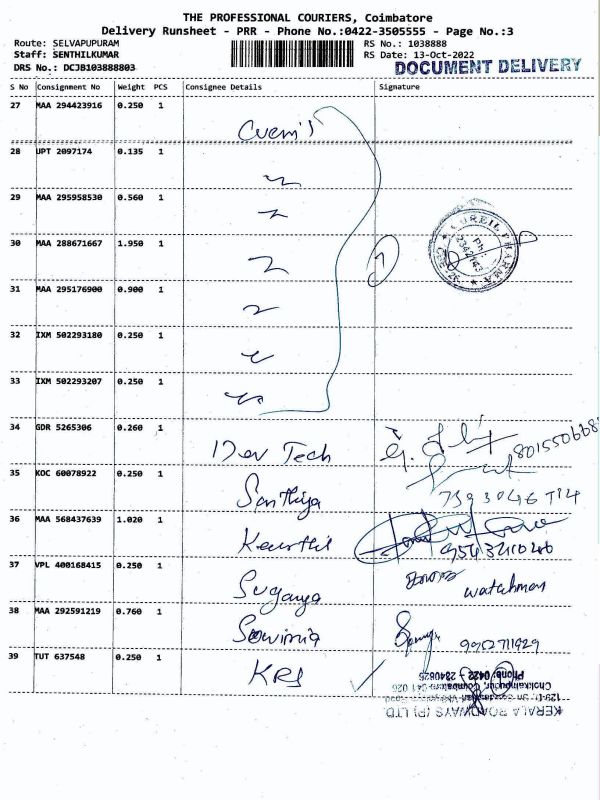 THE PROFESSIONAL COURIERS, Coimbatore
Delivery Runsheet - PRR - Phone No.:0422-3505555 - Page No.:3
Route: SELVAPUPURAM
RS No.: 1038888
Staff: SENTHILKUMAR
RS Date: 13-Oct-2022
DRS No.: DCJB103888803
DOCUMENT DELIVERY
S No Consignment No Weight PCS Consignee Details Signature
27 MAA 294423916 0.250 1
28 UPT 2097174 0.135 1
29 MAA 295958530 0.560 1
30 MAA 288671667 1.950 1
7
31 MAA 295176900 0.900 1
32 IXM 502293180 0.250 1
33 IXM 502293207 0.250 1
34 GDR 5265306 0.260 1 Dev Tech
35 KOC 60078922 0.250 1 Santhiya
36 MAA 568437639 1.020 1 Keerthi
37 VPL 400168415 0.250 1 Suganya watchman
38 MAA 292591219 0.760 1 Sowmia 9952711929
39 TUT 637548 0.250 1 KRS
Phone: 0422 - 2340825
KERALA ROADWAYS (P) LTD.